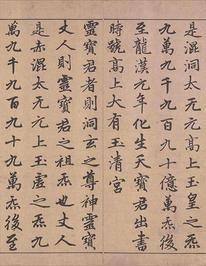 是混洞太无元高上玉皇之炁
九萬九千九百九十億萬炁後
至龍漢元年化生天寶君出書
時號高上大有玉清宮
靈寶君者則洞玄之尊神靈寶
丈人則靈寶君之祖炁也丈人
是赤混太无元上玉虛之炁九
萬九千九百九十九萬炁後至